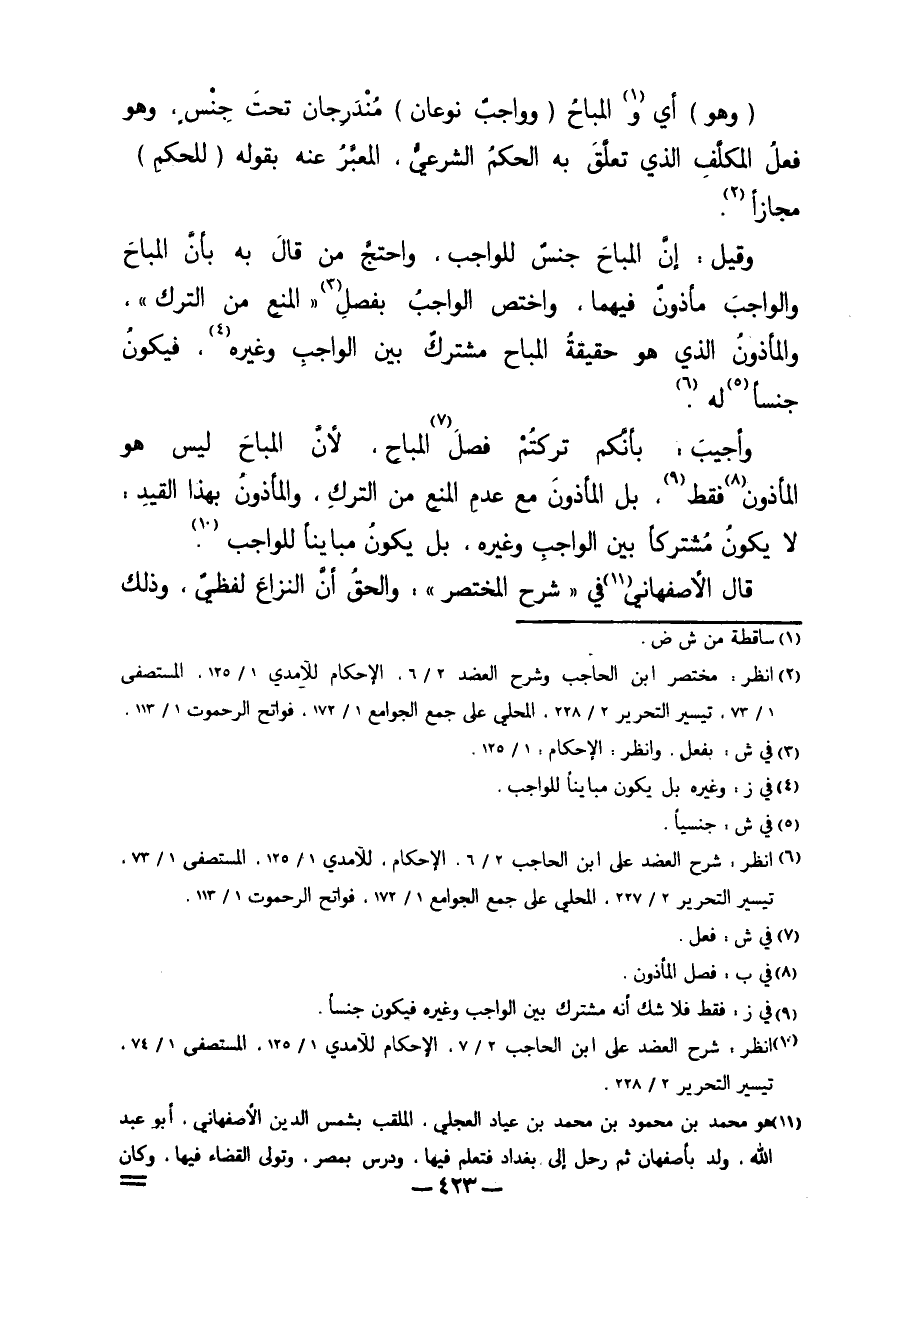 ( وهو ) أي و(١) المباحُ ( وواجبٌ نوعان ) مُنْدَرِجان تحتَ جِنْسٍ ، وهو
فعلُ المكلَّفِ الذي تعلَّقَ به الحكمُ الشرعيُّ ، المعبَّرُ عنه بقوله ( للحكمِ )
مجازاً(٢).
وقيل : إنَّ المباحَ جنسٌ للواجب ، واحتجَّ من قالَ به بأنَّ المباحَ
والواجبَ مأذونٌ فيهما ، واختص الواجبُ بفصلِ(٣) « المنع من الترك » ،
والمأذونُ الذي هو حقيقةُ المباح مشتركٌ بين الواجبِ وغيره(٤) ، فيكونُ
جنساً(٥) له(٦).
وأجيبَ : بأنَّكم تركتُمْ فصلَ(٧) المباحِ ، لأنَّ المباحَ ليس هو
المأذون(٨) فقط(٩) ، بل المأذونَ مع عدمِ المنعِ من التركِ ، والمأذونُ بهذا القيدِ :
لا يكونُ مُشتركاً بين الواجبِ وغيره ، بل يكونُ مبايناً للواجب(١٠).
قال الأصفهاني(١١) في « شرح المختصر » : والحقُ أنَّ النزاعَ لفظيٌ ، وذلك
(١) ساقطة من ش ض .
(٢) انظر : مختصر ابن الحاجب وشرح العضد ٢ / ٦ ، الإحكام للآمدي ١ / ١٢٥ ، المستصفى
١ / ٧٣ ، تيسير التحرير ٢ / ٢٢٨ ، المحلي على جمع الجوامع ١ / ١٧٢ ، فواتح الرحموت ١ / ١١٣ .
(٣) في ش : بفعل . وانظر : الإحكام : ١ / ١٢٥ .
(٤) في ز : وغيره بل يكون مبايناً للواجب .
(٥) في ش : جنسياً .
(٦) انظر : شرح العضد على ابن الحاجب ٢ / ٦ ، الإحكام ، للآمدي ١ / ١٢٥ ، المستصفى ١ / ٧٣ ،
تيسير التحرير ٢ / ٢٢٧ ، المحلي على جمع الجوامع ١ / ١٧٢ ، فواتح الرحموت ١ / ١١٣ .
(٧) في ش : فعل .
(٨) في ب : فصل المأذون .
(٩) في ز : فقط فلا شك أنه مشترك بين الواجب وغيره فيكون جنساً .
(١٠) انظر : شرح العضد على ابن الحاجب ٢ / ٧ ، الإحكام للآمدي ١ / ١٢٥ ، المستصفى ١ / ٧٤ ،
تيسير التحرير ٢ / ٢٢٨ .
(١١) هو محمد بن محمود بن محمد بن عياد العجلي ، الملقب بشمس الدين الأصفهاني ، أبو عبد
الله ، ولد بأصفهان ثم رحل إلى بغداد فتعلم فيها ، ودرس بمصر ، وتولى القضاء فيها ، وكان
=
— ٤٢٣ —